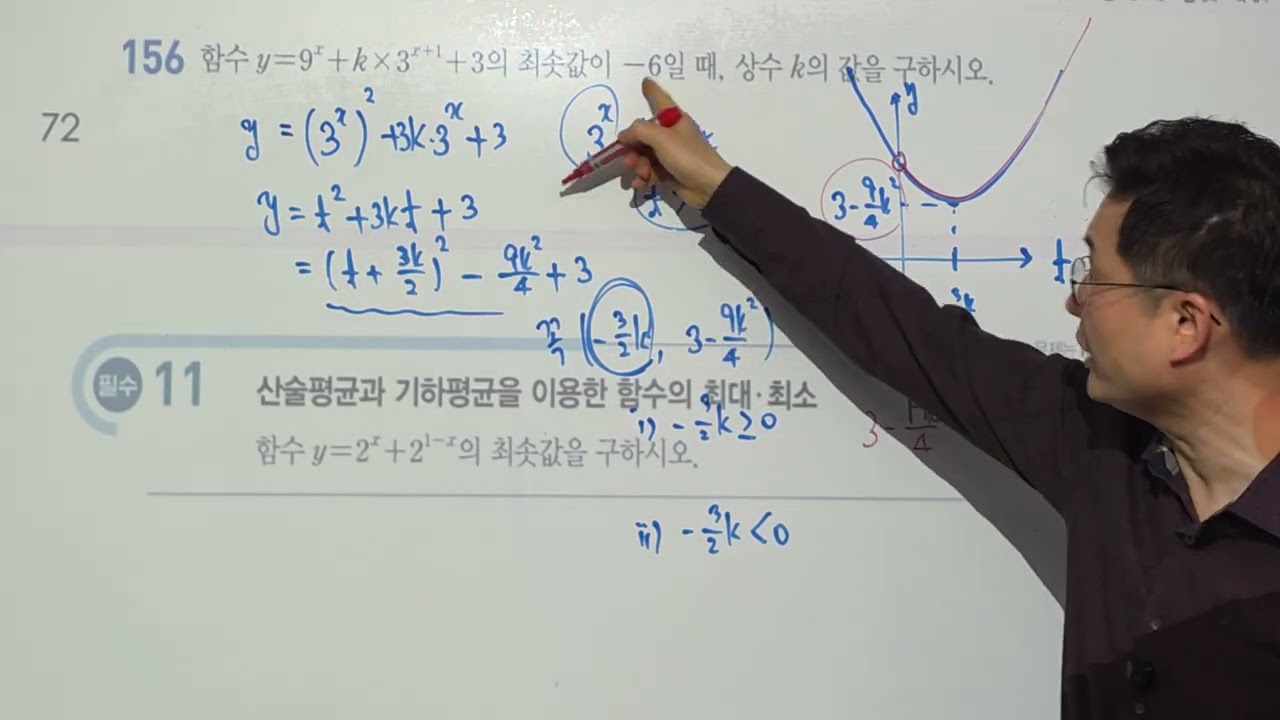 156 함수 y=9^x+k×3^{x+1}+3의 최솟값이 -6일 때, 상수 k의 값을 구하시오.
72
y = (3^x)^2 + 3k·3^x + 3
3^x
y = t^2 + 3kt + 3
t
= (t + 3k/2)^2 - 9k^2/4 + 3
꼭 (-3/2 k, 3 - 9k^2/4)
y
3 - 9k^2/4
t
필수 11 산술평균과 기하평균을 이용한 함수의 최대·최소
i) -3/2 k ≥ 0
함수 y=2^x+2^{1-x}의 최솟값을 구하시오.
ii) -3/2 k < 0